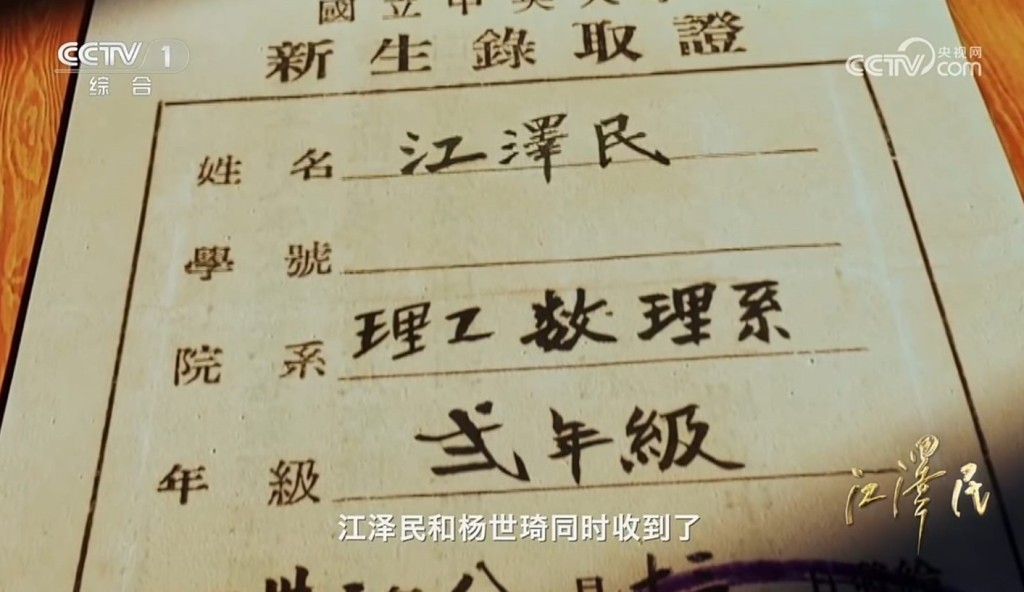 CCTV 1
综合
央视网
CCTV.com
國立中央大
新生錄取證
姓名 江澤民
學號
院系 理工数理系
年級 弍年級
江澤民
江泽民和杨世琦同时收到了